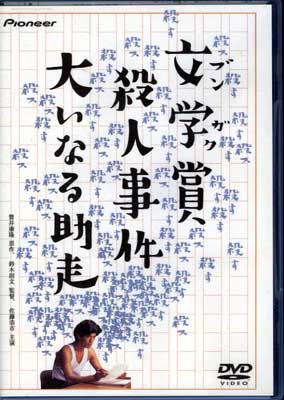 Pioneer
ブンガク
文学賞
殺人事件
大いなる助走
筒井康隆 原作 鈴木則文 監督 佐藤浩市 主演
DVD
VIDEO